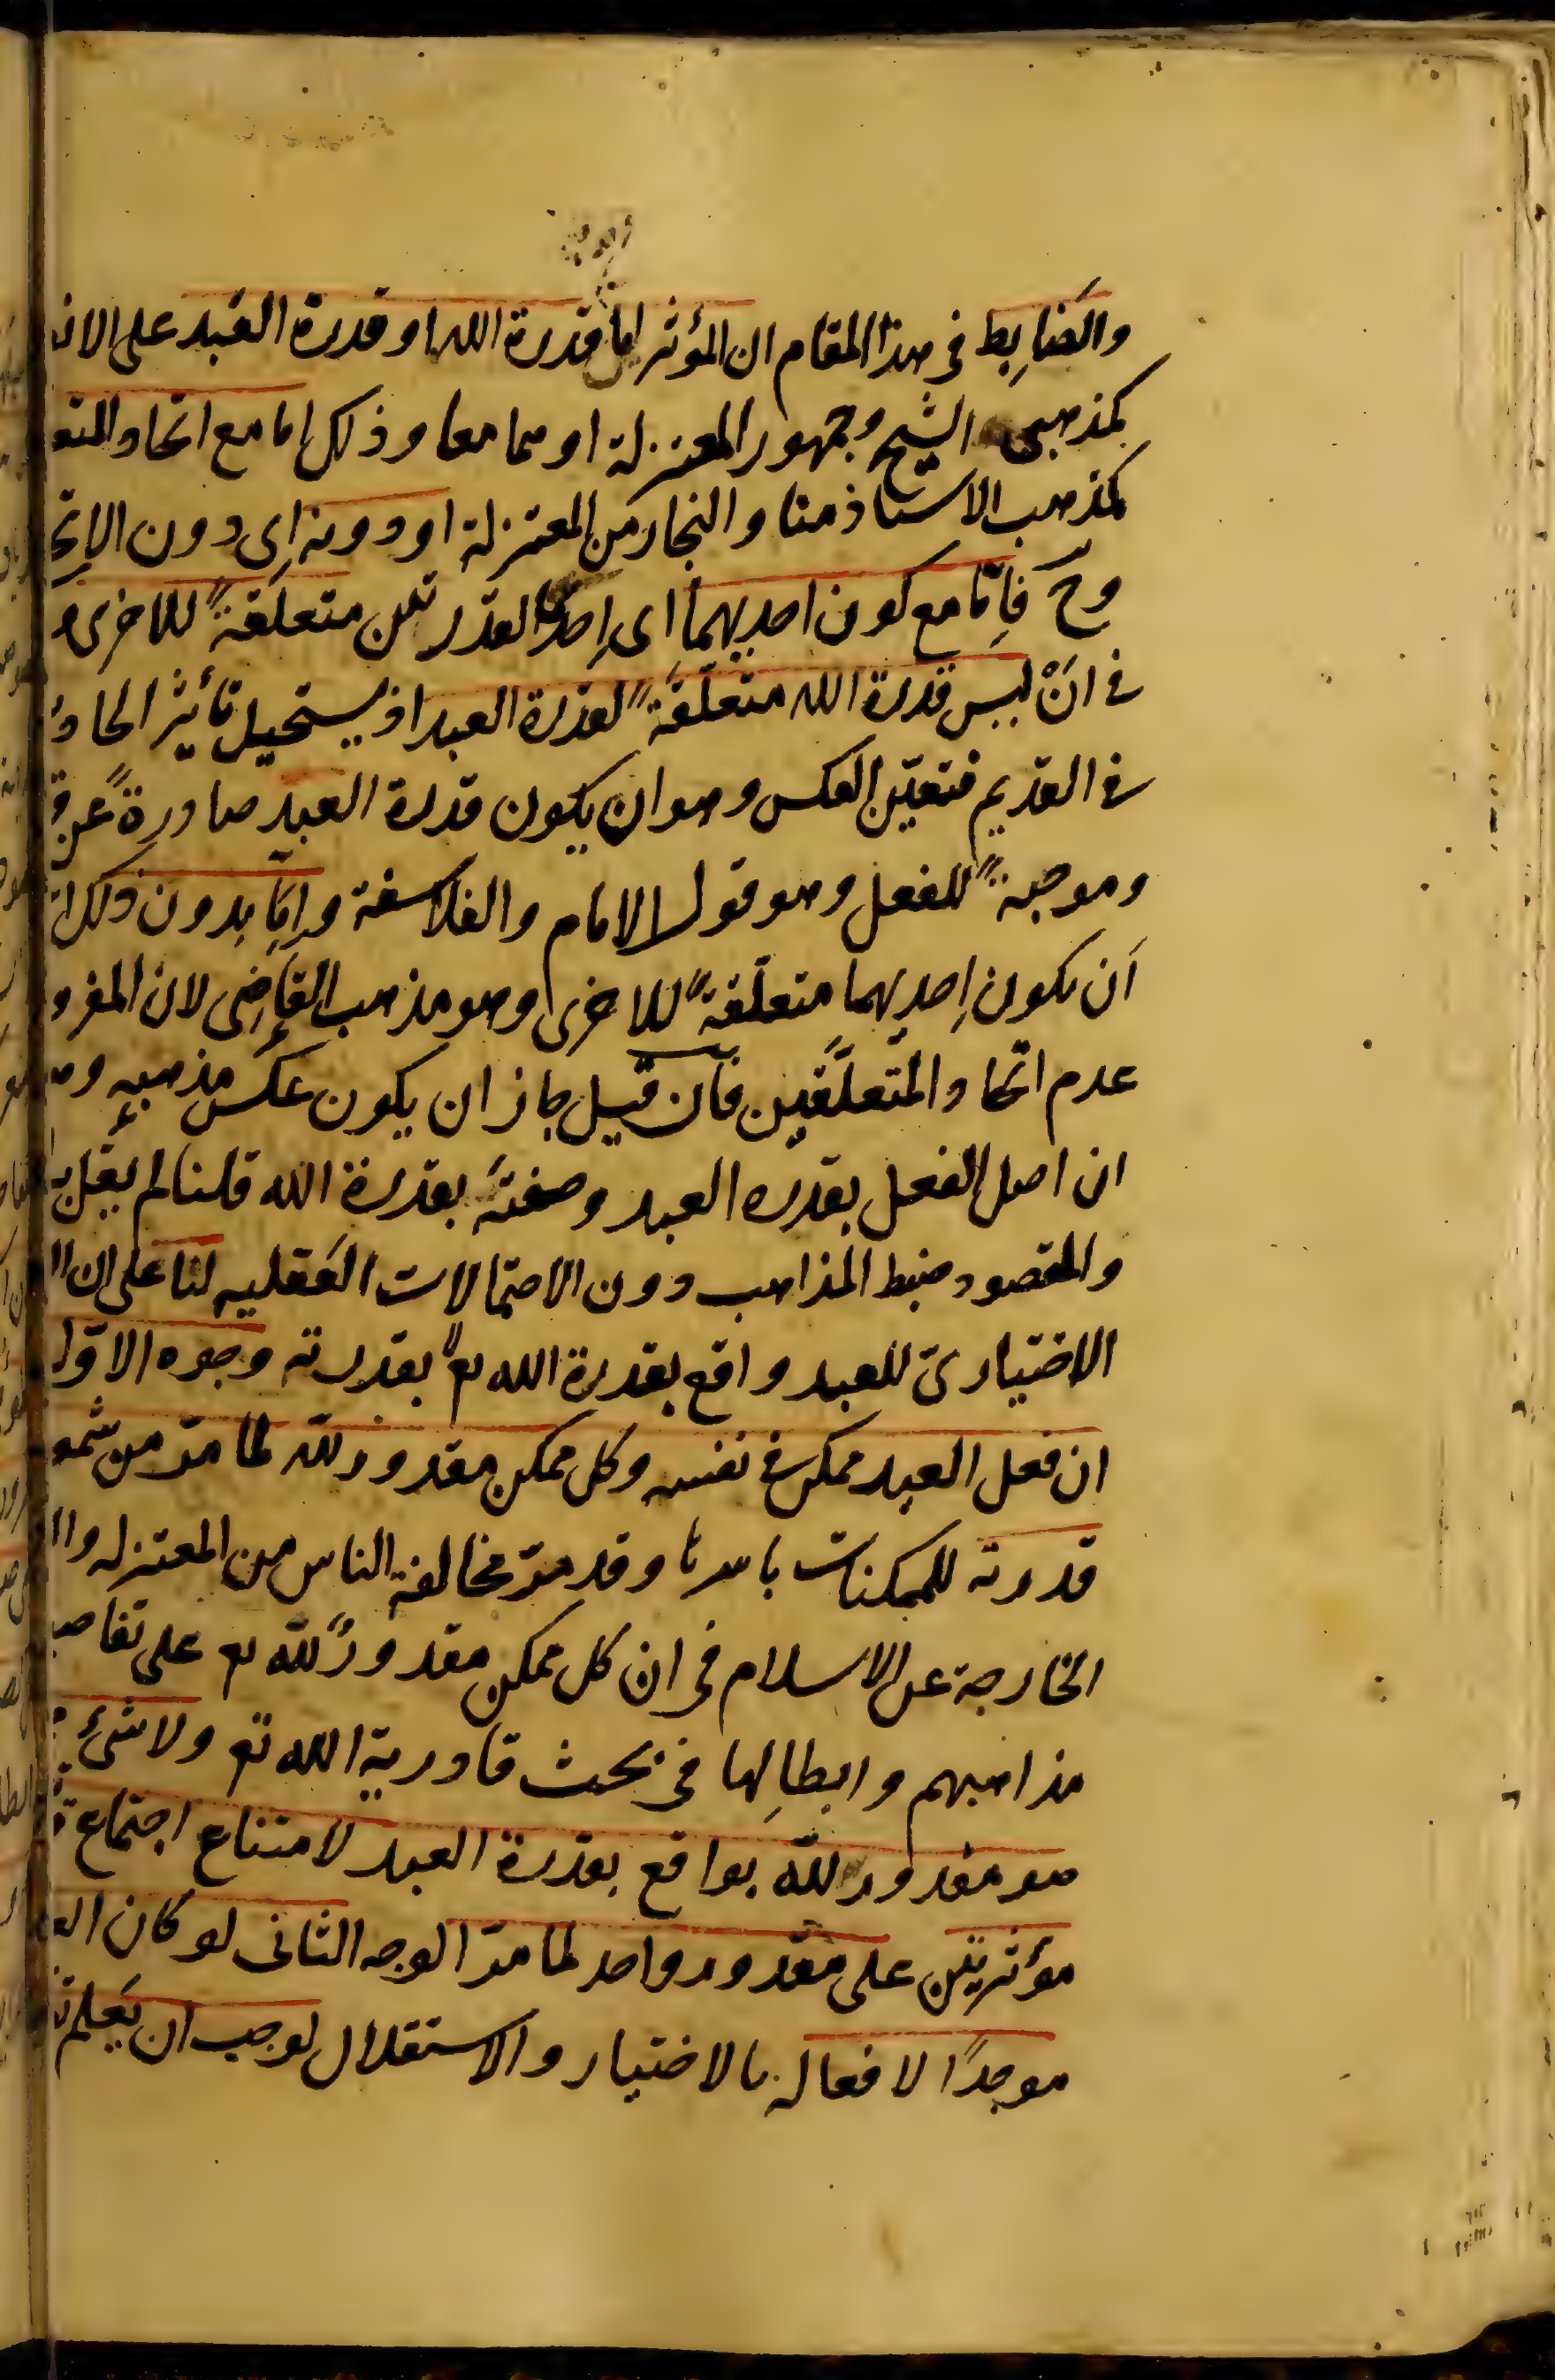 والضابط في هذا المقام ان المؤثر اما قدرة الله او قدرة العبد على الانـ
كمذهبى الشيخ وجمهور المعتزلة او هما معا وذلك اما مع اتحاد المتعـ
كمذهب الاستاذ منا والنجار من المعتزلة او دونه اى دون الاتحـ
وح فاما مع كون احديهما اى احدى القدرتين متعلقة للاخرى و
فى ان ليس قدرة الله متعلقة لقدرة العبد اذ يستحيل تأثير الحاد
فى القديم فتعين العكس وهو ان يكون قدرة العبد صادرة عن قـ
وموجبة للفعل وهو قول الامام والفلاسفة واما بدون ذلك ا
ان يكون احديهما متعلقة للاخرى وهو مذهب القاضى لان المفرو
عدم اتحاد المتعلقين فان قيل جاز ان يكون عكس مذهبه وهـ
ان اصل الفعل بقدره العبد وصفته بقدرة الله قلنا لم يقل بـ
والمقصود ضبط المذاهب دون الاحتمالات العقليه لنا على ان ا
الاختيارى للعبد واقع بقدرة الله تع لا بقدرته وجوه الاول
ان فعل العبد ممكن فى نفسه وكل ممكن مقدور لله لما مر من شمو
قدرته للممكنات باسرها وقد مر مخالفة الناس من المعتزله وا
الخارجة عن الاسلام فى ان كل ممكن مقدور لله تع على تفاصيـ
مذاهبهم وابطالها فى بحث قادرية الله تع ولا شئ
هو مقدور لله بواقع بقدرة العبد لامتناع اجتماع قـ
مؤثرتين على مقدور واحد لما مر الوجه الثانى لو كان العـ
موجدا لافعاله بالاختيار والاستقلال لوجب ان يعلم تـ